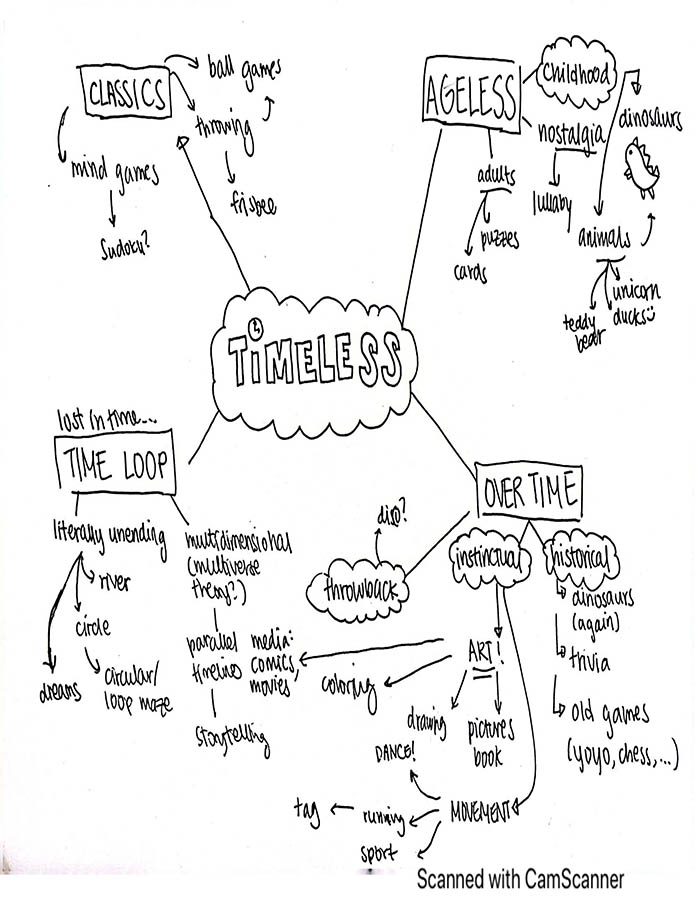 CLASSICS
ball games
throwing
frisbee
mind games
Sudoku?
AGELESS
Childhood
nostalgia
lullaby
dinosaurs
animals
teddy
bear
unicorn
ducks
adults
puzzles
cards
TIMELESS
lost in time...
TIME LOOP
literally unending
river
circle
circular/
loop maze
dreams
multidimensional
(multiverse
theory?)
parallel
timelines
storytelling
OVER TIME
throwback
disco?
instinctual
ART!
media:
comics,
movies
coloring
drawing
pictures
book
MOVEMENT
DANCE!
running
tag
sport
historical
dinosaurs
(again)
trivia
old games
(yoyo, chess,...)
Scanned with CamScanner